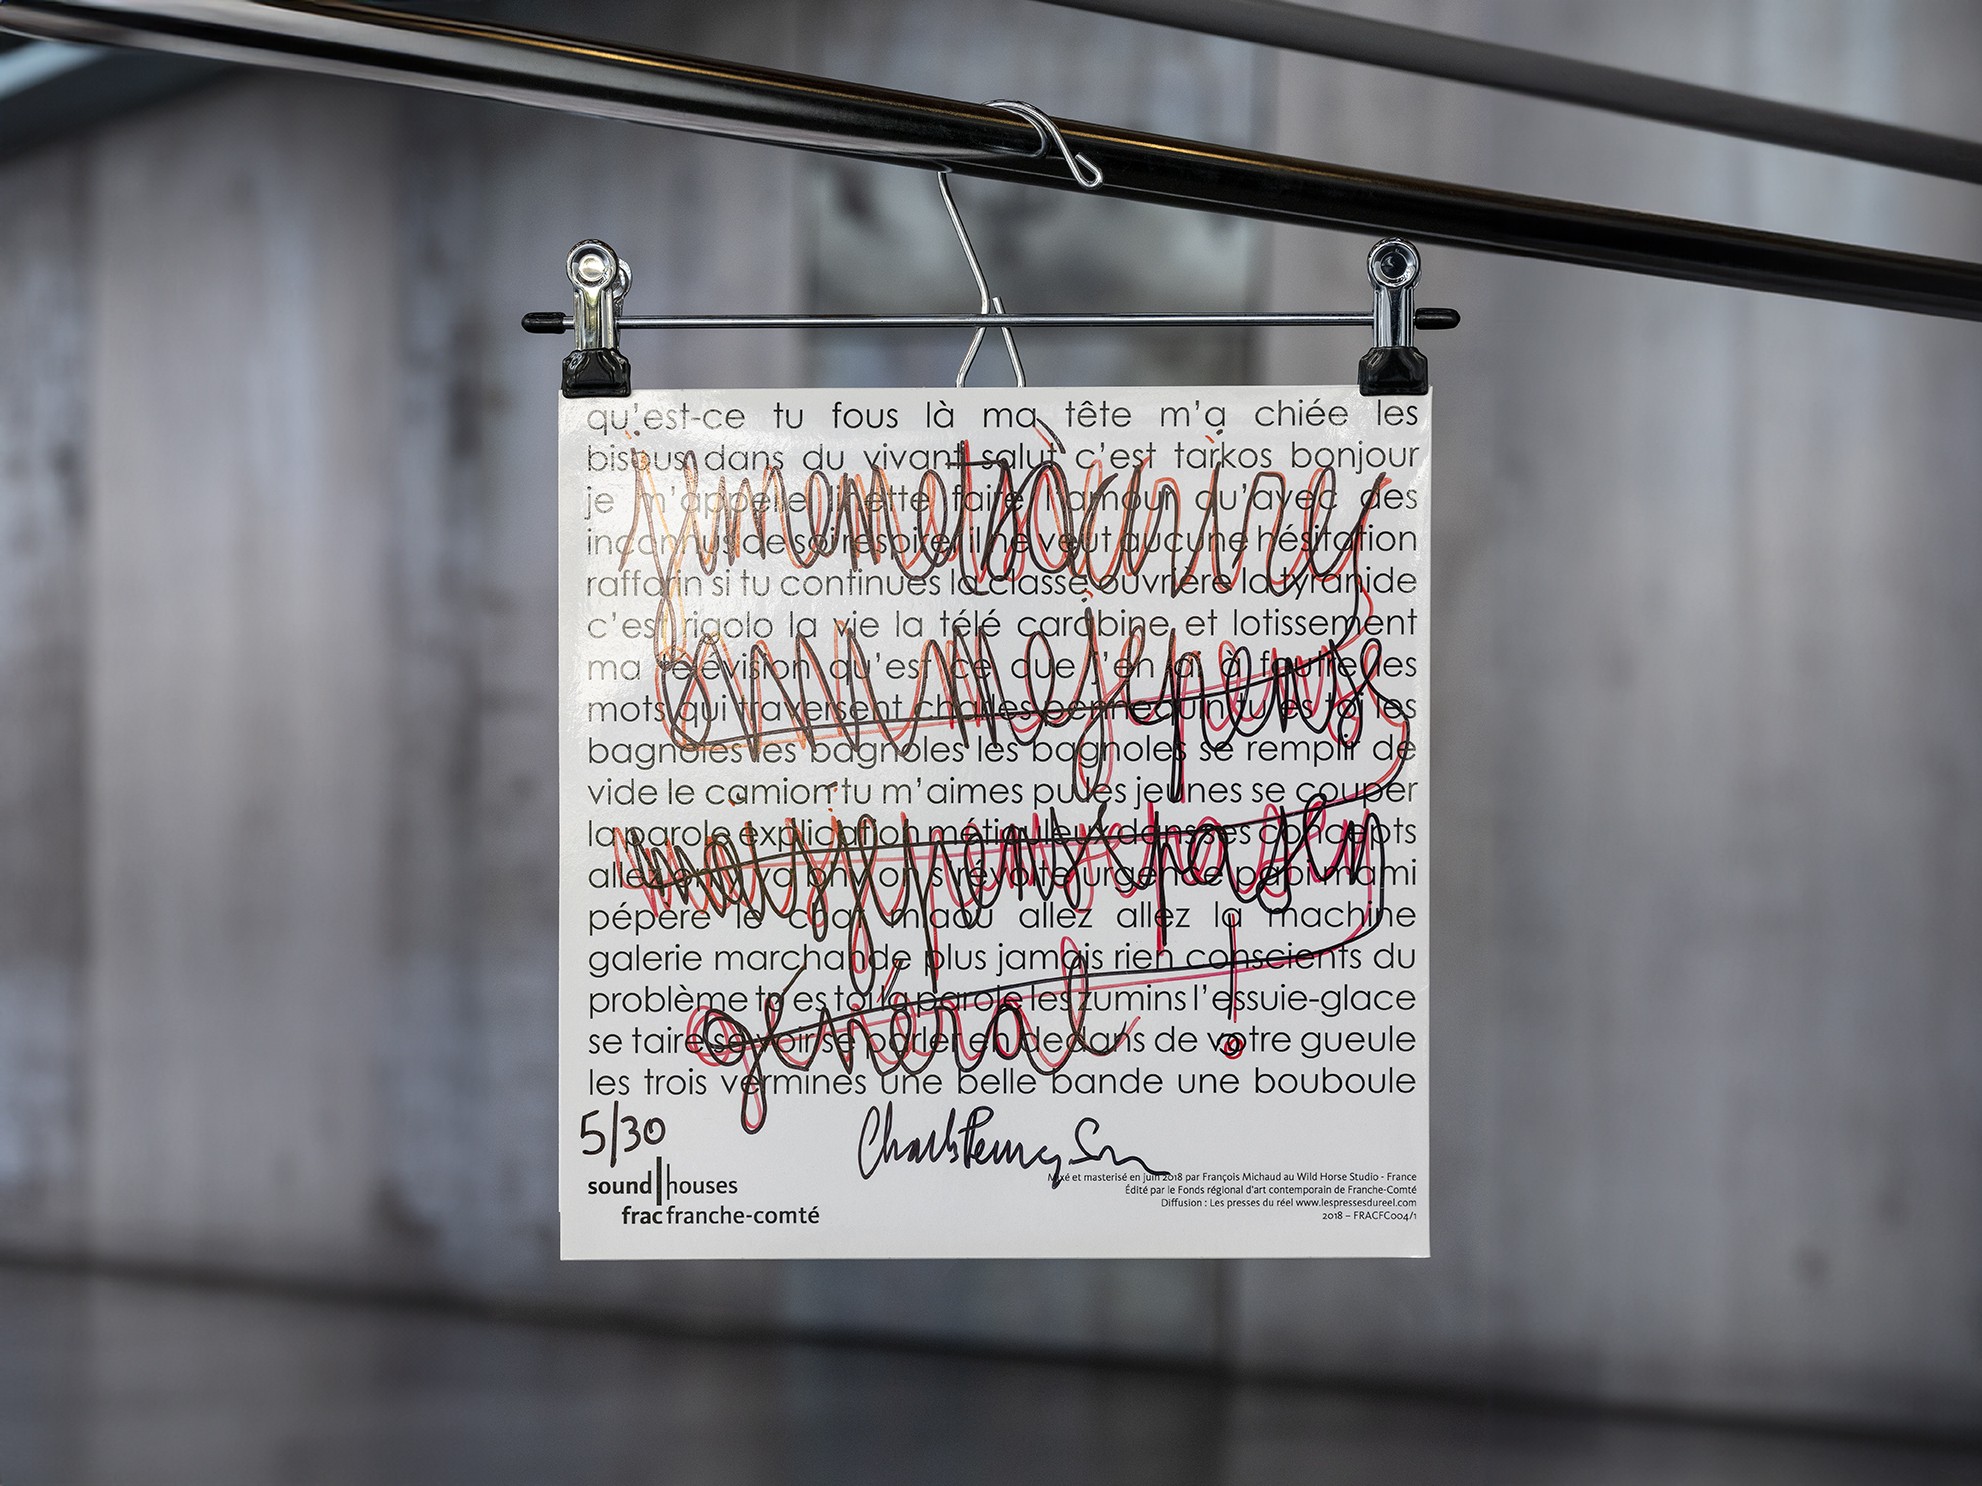 qu'est-ce tu fous là ma tête m'a chiée les
bisous dans du vivant salut c'est tarkos bonjour
je m'appelle linette faire l'amour qu'avec des
inconnus de soi respirer il ne veut aucune hésitation
raffarin si tu continues la classe ouvrière la tyranide
c'est rigolo la vie la télé carabine et lotissement
ma télévision qu'est ce que j'en ai à foutre les
mots qui traversent charles pennequin tu es toi les
bagnoles les bagnoles les bagnoles se remplir de
vide le camion tu m'aimes pu les jeunes se couper
la parole explication méticuleux dans ses concepts
allez on y va bhv on s révolte urgence papi mami
pépère le chat miaou allez allez la machine
galerie marchande plus jamais rien conscients du
problème tu es toi la parole les zumins l'essuie-glace
se taire se voir se parler en dedans de votre gueule
les trois vermines une belle bande une bouboule
j'memetzàcrire
comme je pense
mais je pens' pas en
général !
5/30
Charles Pennequin
sound houses
frac franche-comté
Mixé et masterisé en juin 2018 par François Michaud au Wild Horse Studio - France
Édité par le Fonds régional d'art contemporain de Franche-Comté
Diffusion : Les presses du réel www.lespressesdureel.com
2018 – FRACFC004/1